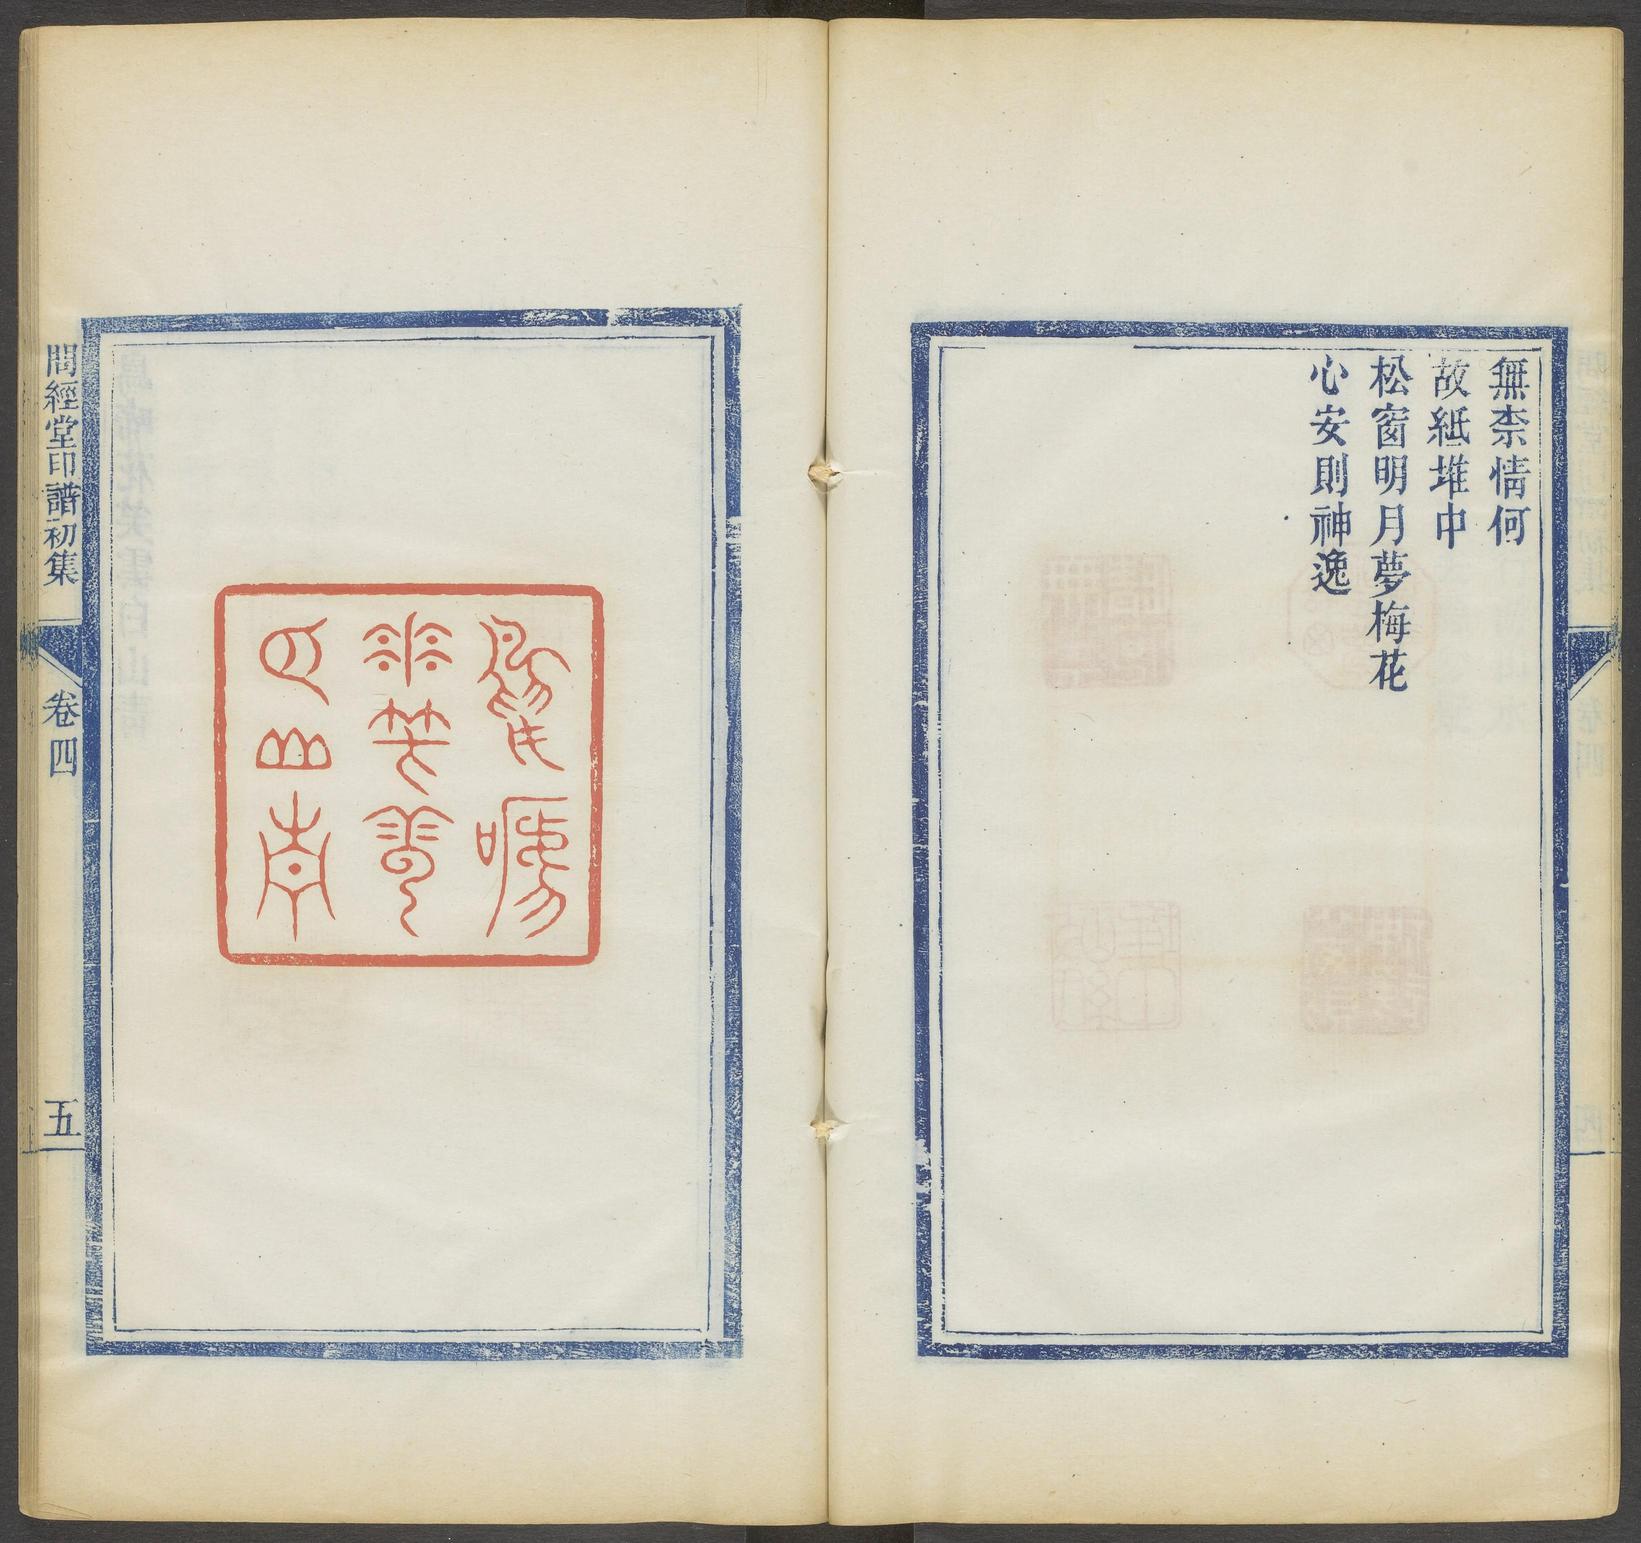 無柰情何
故紙堆中
松窗明月夢梅花
心安則神逸
鳥嗁
華笑雲
白山青
問經堂印譜初集
卷四
五